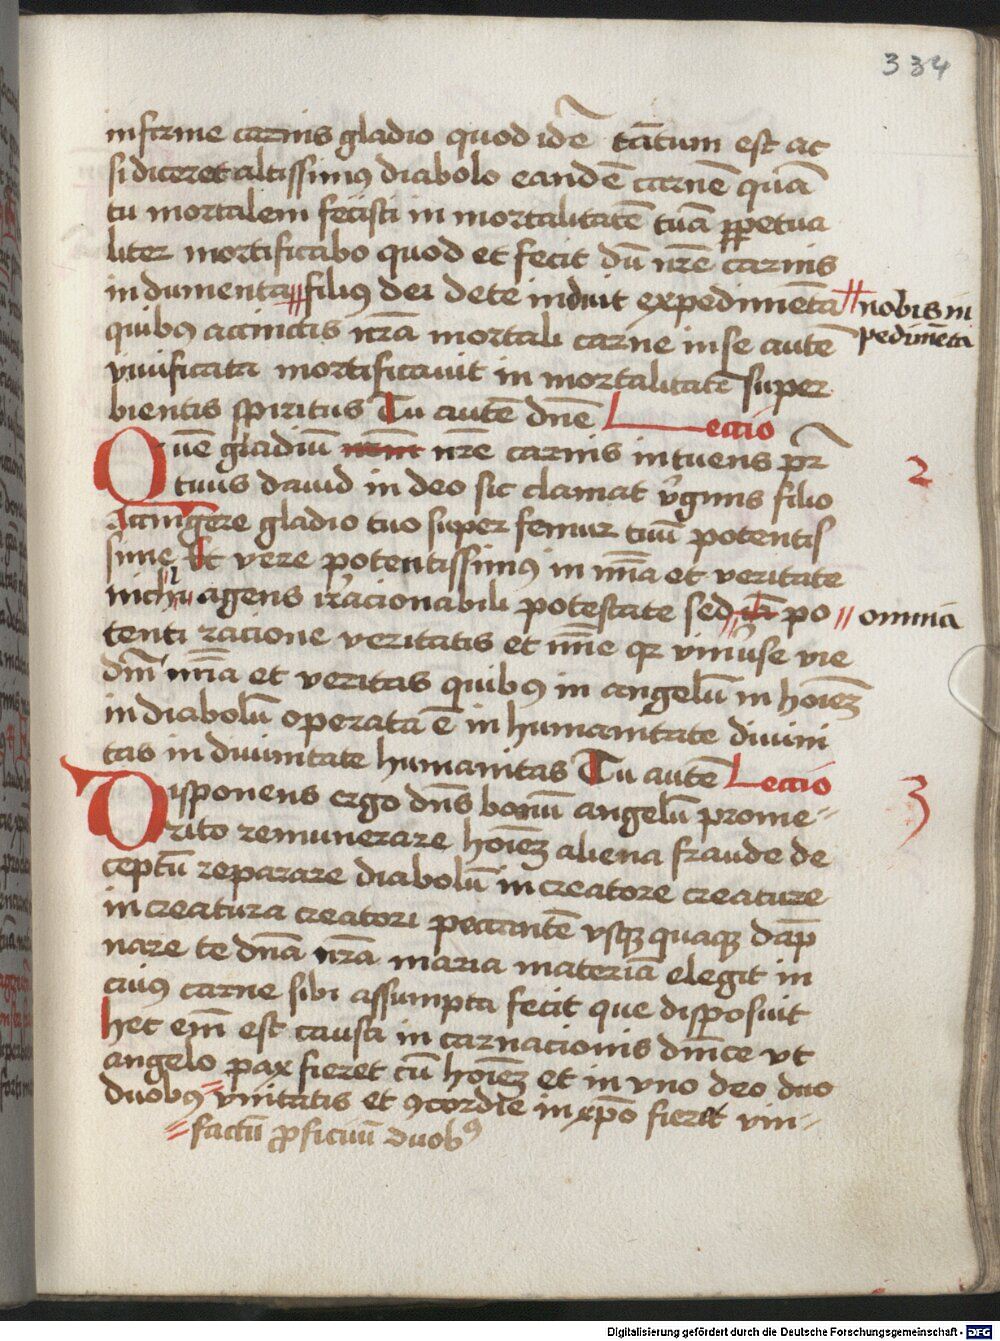 334
infirme carnis gladio quod idē tātum est ac
si diceret altissimꝰ diabolo eandē carnē quā
tu mortalem fecisti in mortalitatē tuā ꝑpetua
liter mortificabo quod et fecit dū nr̄e carnis
indumenta filiꝰ dei de te induit expedimēta nobis in
pedimēta
quibꝰ accinctis nr̄a mortali carne in se autē
vivificata mortificavit in mortalitatē super
bientis spiritus Tu autē dn̄e Lectio
Quē gladiū nr̄e carnis intuens pr̄ 2
tuus david in deo sic clamat v̓ginis filio
Accingere gladio tuo super femur tuū potentis
sime Et vere potentissimꝰ in mīa et veritate
nichil agens irracionabili potestate sed po omnia
tenti racione veritatis et mīe qꝛ viniv̓se vie
dn̄i mīa et veritas quibꝰ in angelū in hoīeꝫ
in diabolū operata ē in humanitate divini
tas in divinitate humanitas Tu autē Lectio
Disponens ergo dn̄s bonū angelū prome- 3
rito remunerare hoīeꝫ aliena fraude de
ceptū reparare diabolū in creatore creature
in creatura creatori peccantē vsqꝫ quaqꝫ dāp
nare te dn̄a nr̄a maria materiā elegit in
cuiꝰ carne sibi assumpta fecit que disposuit
hec em̄ est causa in carnacionis dn̄ice vt
angelo pax fieret cū hoīeꝫ et in vno deo duo
duobꝰ vnitatis et ꝯcordie in xp̄o fieret vin-
factū ꝓficiuū duobꝰ
Digitalisierung gefördert durch die Deutsche Forschungsgemeinschaft - DFG